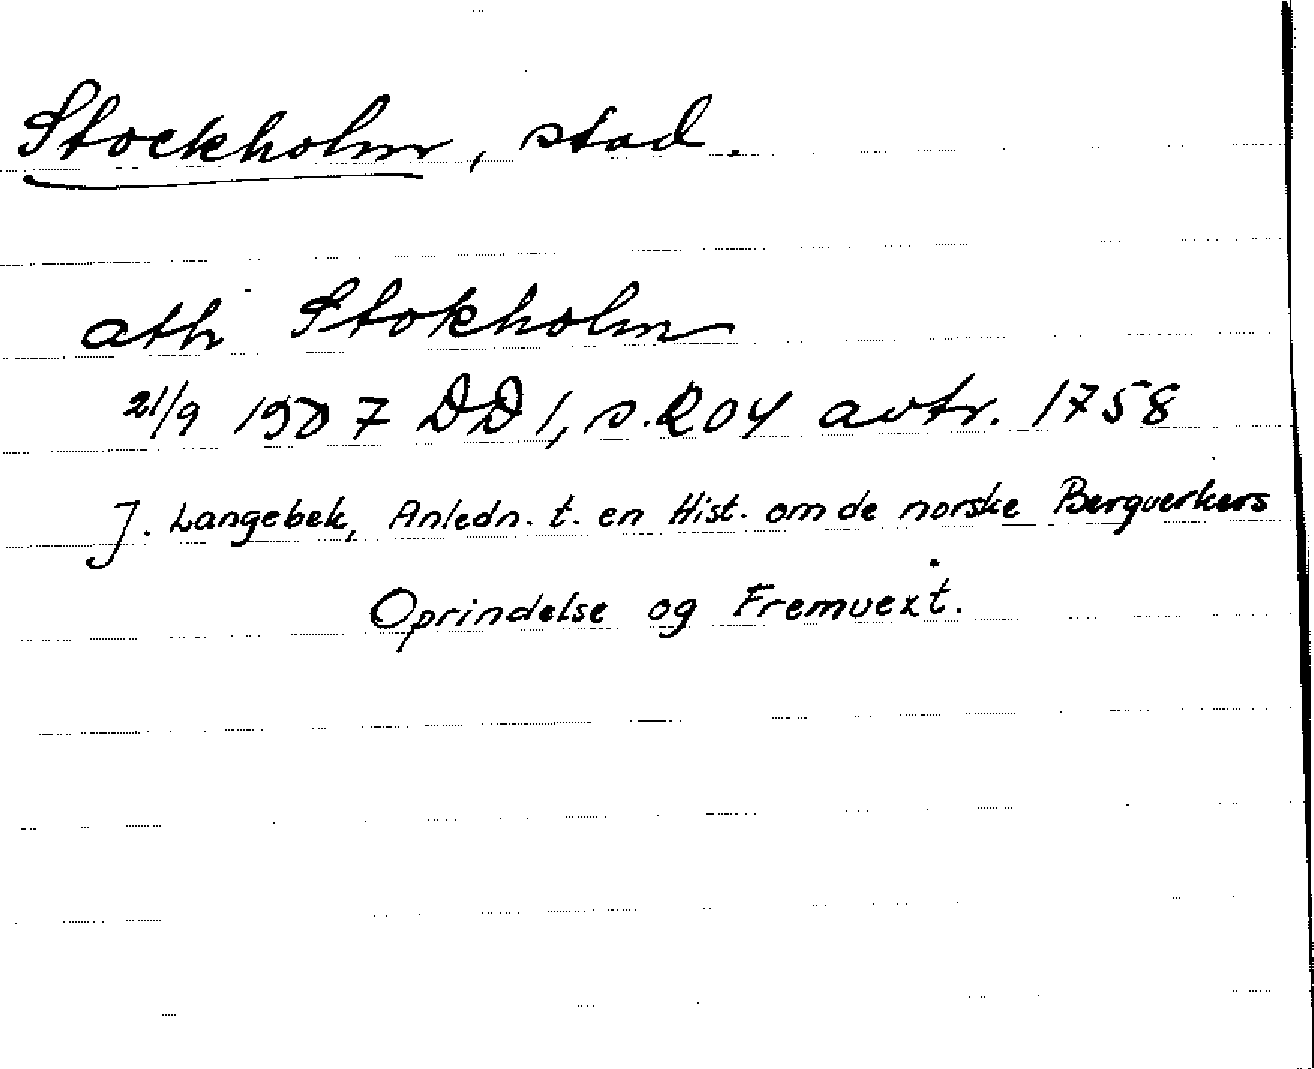 Stockholm, stad.
ath Stokholm
21/9 1507 DD 1, s. 204 avtr. 1758
J. Langebek, Anledn. t. en Hist. om de norske Bergverkers
Oprindelse og Fremvext.